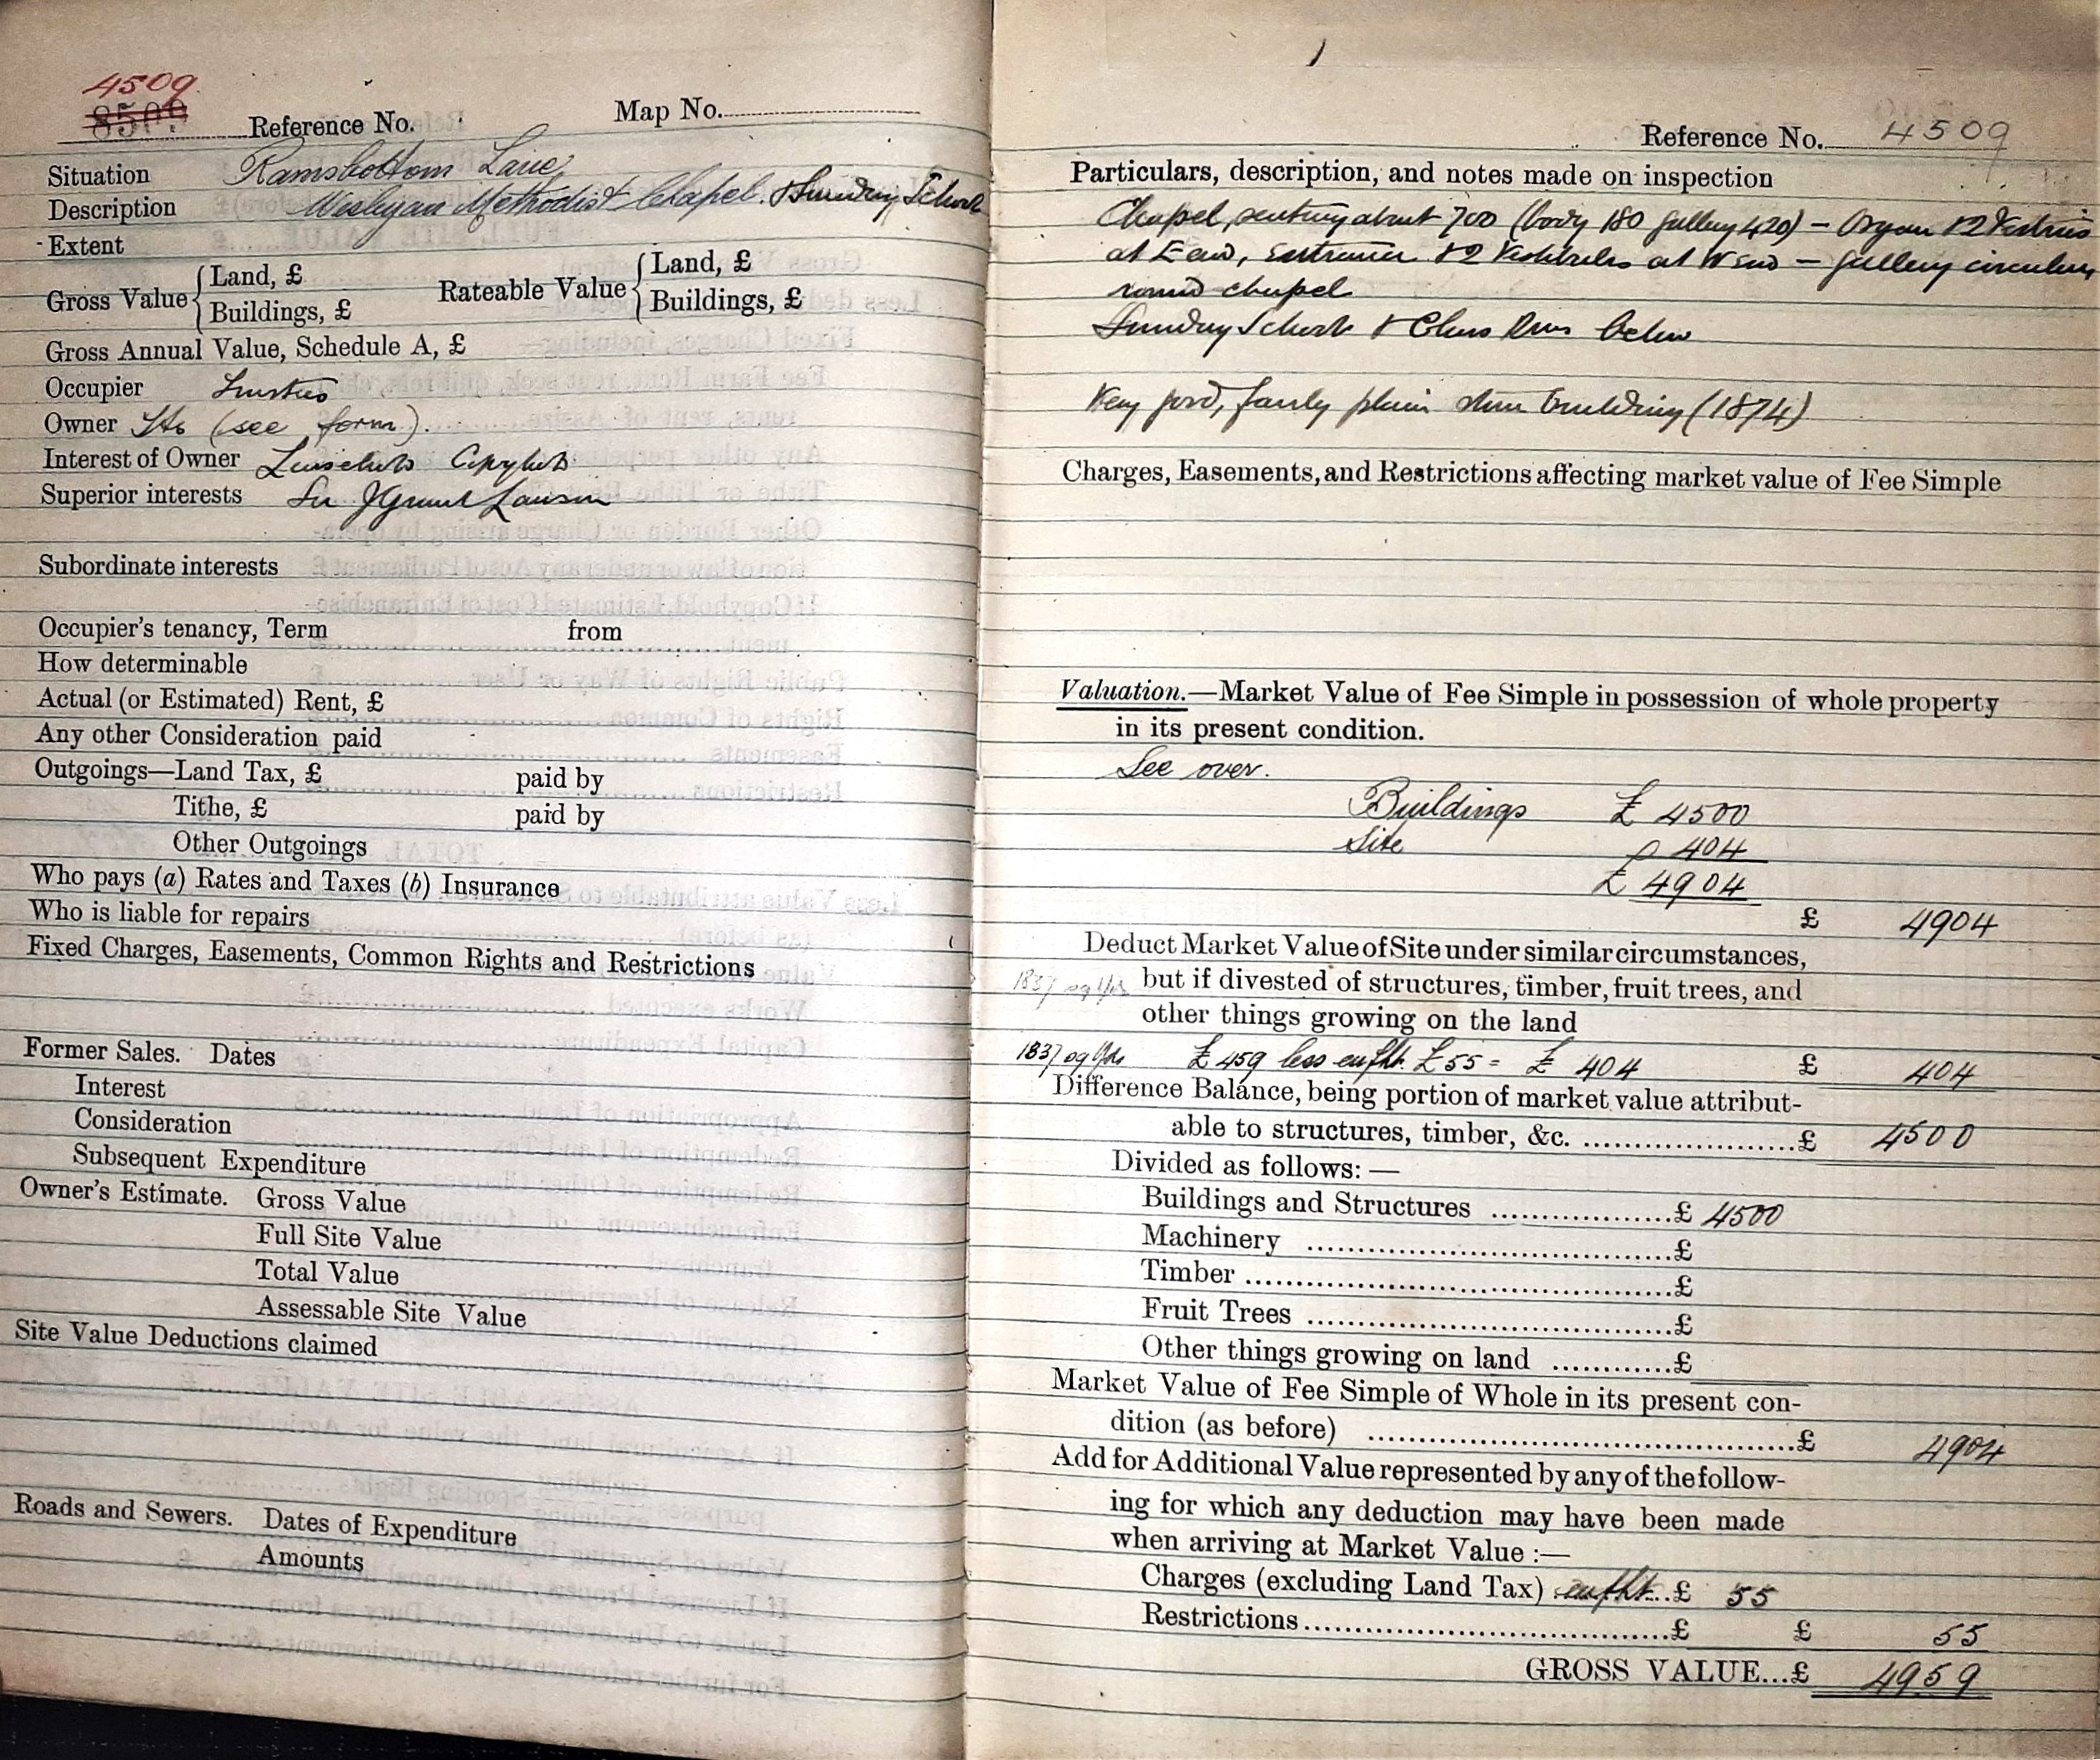 4509
8509 Reference No. Map No.
Situation Ramsbottom Lane,
Description Wesleyan Methodist Chapel. & Sunday School
Extent
Gross Value { Land, £ Rateable Value { Land, £
Buildings, £ Buildings, £
Gross Annual Value, Schedule A, £
Occupier Trustees
Owner (see form).
Interest of Owner Leasehold Copyhold
Superior interests Sir J Grant Lawson
Subordinate interests
Occupier's tenancy, Term from
How determinable
Actual (or Estimated) Rent, £
Any other Consideration paid
Outgoings—Land Tax, £ paid by
Tithe, £ paid by
Other Outgoings
Who pays (a) Rates and Taxes (b) Insurance
Who is liable for repairs
Fixed Charges, Easements, Common Rights and Restrictions
Former Sales. Dates
Interest
Consideration
Subsequent Expenditure
Owner's Estimate. Gross Value
Full Site Value
Total Value
Assessable Site Value
Site Value Deductions claimed
Roads and Sewers. Dates of Expenditure
Amounts
Reference No. 4509
Particulars, description, and notes made on inspection
Chapel, seating about 700 (body 180 gallery 420) – Organ & 2 Vestries
at E end, entrance & 2 Vestibules at W end – gallery circular
round chapel
Sunday School & Class Rms below
Very good, fairly plain stone building (1874)
Charges, Easements, and Restrictions affecting market value of Fee Simple
Valuation.—Market Value of Fee Simple in possession of whole property
in its present condition.
See over.
Buildings £ 4500
Site 404
£ 4904
£ 4904
Deduct Market Value of Site under similar circumstances,
1837 sq Yds but if divested of structures, timber, fruit trees, and
other things growing on the land
1837 sq Yds £ 459 less enfht. £ 55 = £ 404 £ 404
Difference Balance, being portion of market value attribut-
able to structures, timber, &c. ........ £ 4500
Divided as follows: —
Buildings and Structures ........ £ 4500
Machinery ........ £
Timber ........ £
Fruit Trees ........ £
Other things growing on land ........ £
Market Value of Fee Simple of Whole in its present con-
dition (as before) ........ £ 4904
Add for Additional Value represented by any of the follow-
ing for which any deduction may have been made
when arriving at Market Value :—
Charges (excluding Land Tax) enfht. £ 55
Restrictions ........ £ £ 55
GROSS VALUE...£ 4959